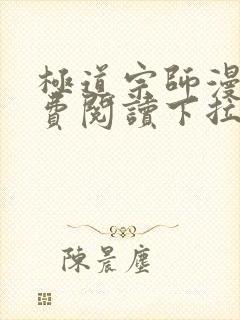 極道宗師漫
費閱讀下拉
陳晨塵